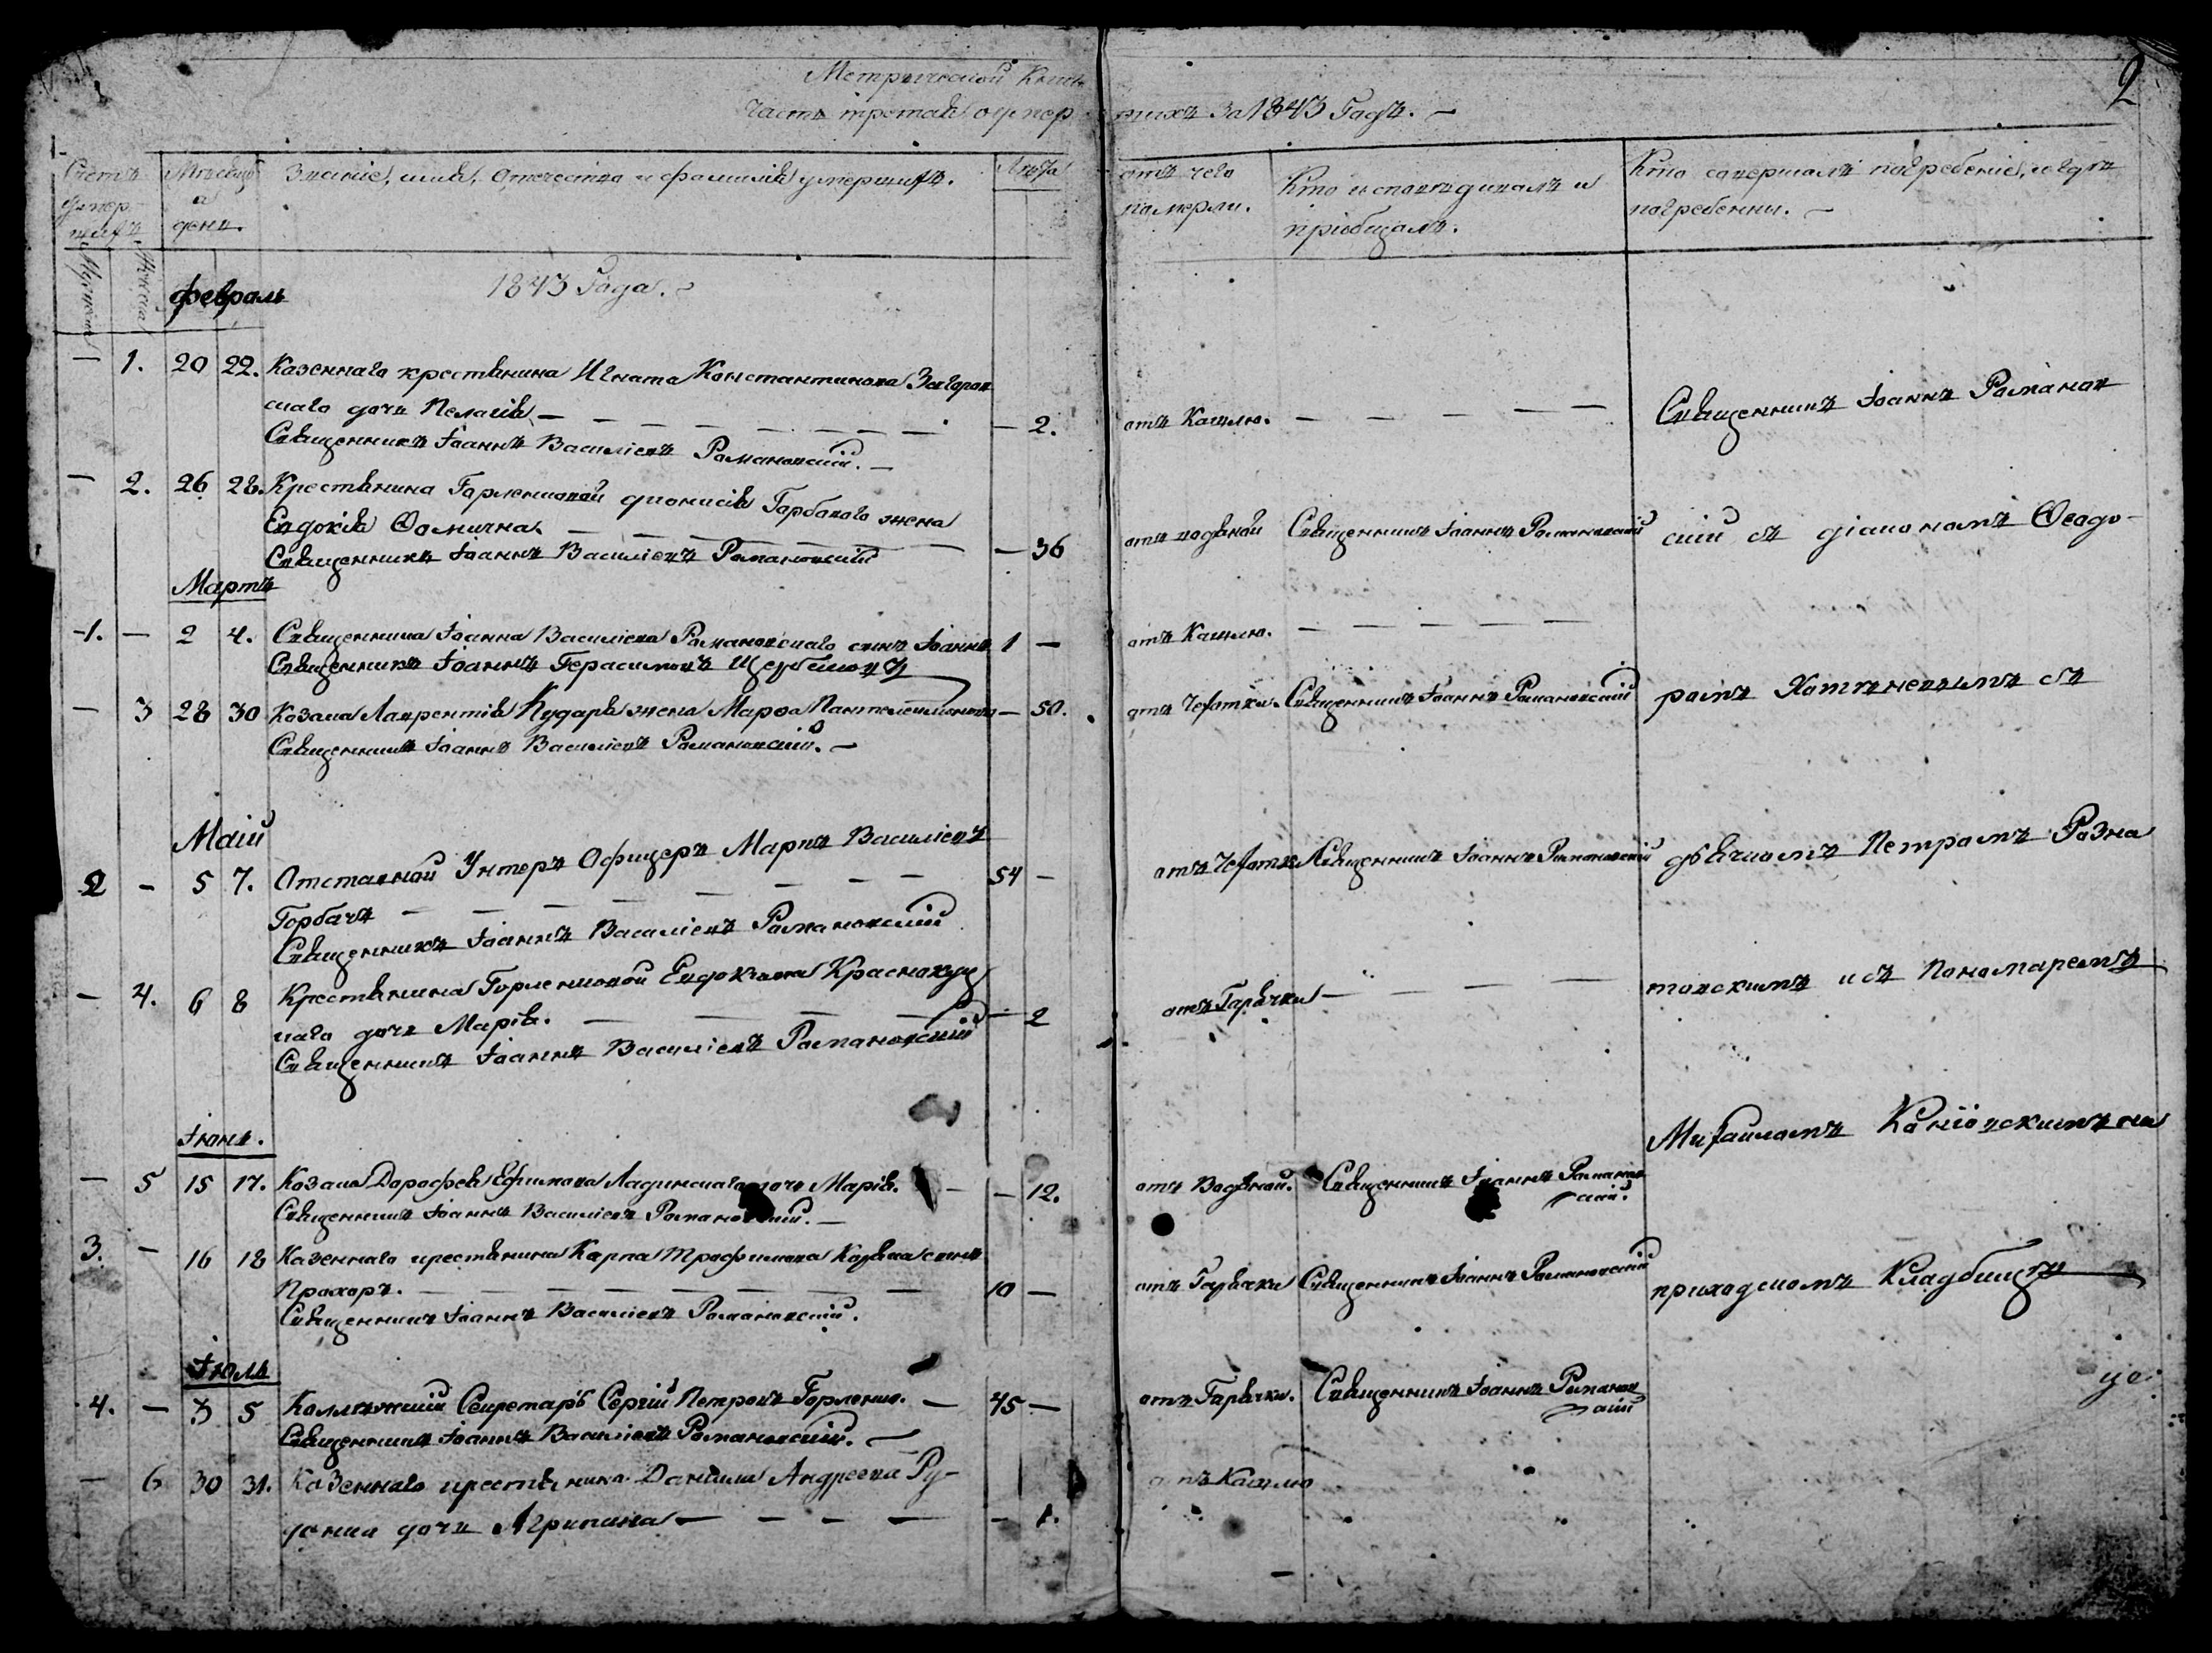 2
Метрической Книги
Часть третая о умер шихъ За 1843 Годъ. —
Счетъ умер- шихъ
Мужеска
Женска
Мѣсяцъ и день.
Званіе, имя, Отечество и фамилія умершихъ.
Лѣта
отъ чего померли.
Кто исповѣдивалъ и пріобщалъ.
Кто совершалъ погребеніе, и где погребенны. —
февраль
1843 Года. —
— 1. 20 22. Казеннаго крестянина Игната Константинова Загоров
скаго дочь Пелагія — — 2. отъ Кашлю. — — — — — Священникъ Іоаннъ Романов
Священникъ Іоаннъ Василіевъ Романовскій. —
— 2. 26 28. Крестянина Горленковой Дионисія Горбатого жена
Евдокія Фомична — — 36 отъ водяной Священникъ Іоаннъ Романовскій скій съ діакономъ Ѳеодо-
Священникъ Іоаннъ Василіевъ Романовскій
Мартъ
1. — 2 4. Священника Іоанна Василіева Романовскаго синъ Іоаннъ 1 — отъ Кашлю. — — — — —
Священникъ Іоаннъ Герасимовъ
— 3 28 30 Козака Лаврентія Кударя жена Марѳа Пантелеимонова — 50. отъ Чехотки. Священникъ Іоаннъ Романовскій ромъ съ
Священникъ Іоаннъ Василіевъ Романовскій. —
Маій
2 — 5 7. Отставной Унтеръ Офицеръ Маркъ Василіевъ 54 — отъ Чехотки Священникъ Іоаннъ Романовскій дьячкомъ Петромъ Розна
Горбачъ — — — —
Священникъ Іоаннъ Василіевъ Романовскій
— 4. 6 8 Крестянина Горленковой Евдокима Краснокуц
каго дочь Марія. — — 2 отъ Гарячки — — — — товскимъ и съ Пономаремъ
Священникъ Іоаннъ Василіевъ Романовскій
Михаиломъ на
Іюнь.
— 5 15 17. Козака Дорофея Ефимова Ладинскаго дочь Марія. — — 12. отъ Водяной. Священникъ Іоаннъ Романов
скій.
Священникъ Іоаннъ Василіевъ Романовскій. —
3. — 16 18 Казеннаго крестянина Карпа Трофимова синъ
Прохоръ. — — 10 — отъ Гарячки Священникъ Іоаннъ Романовскій приходскомъ Кладбищѣ
Священникъ Іоаннъ Василіевъ Романовскій.
Іюль
4. — 3 5 Коллежскій Секретарь Сергій Петровъ Горленко. — 45 — отъ Гарячки. Священникъ Іоаннъ Романов
скій
Священникъ Іоаннъ Василіевъ Романовскій. —
— 6 30 31. Казеннаго крестянина Даніила Андреева Ру-
дочь Агрипина — — — — 1. отъ Кашлю